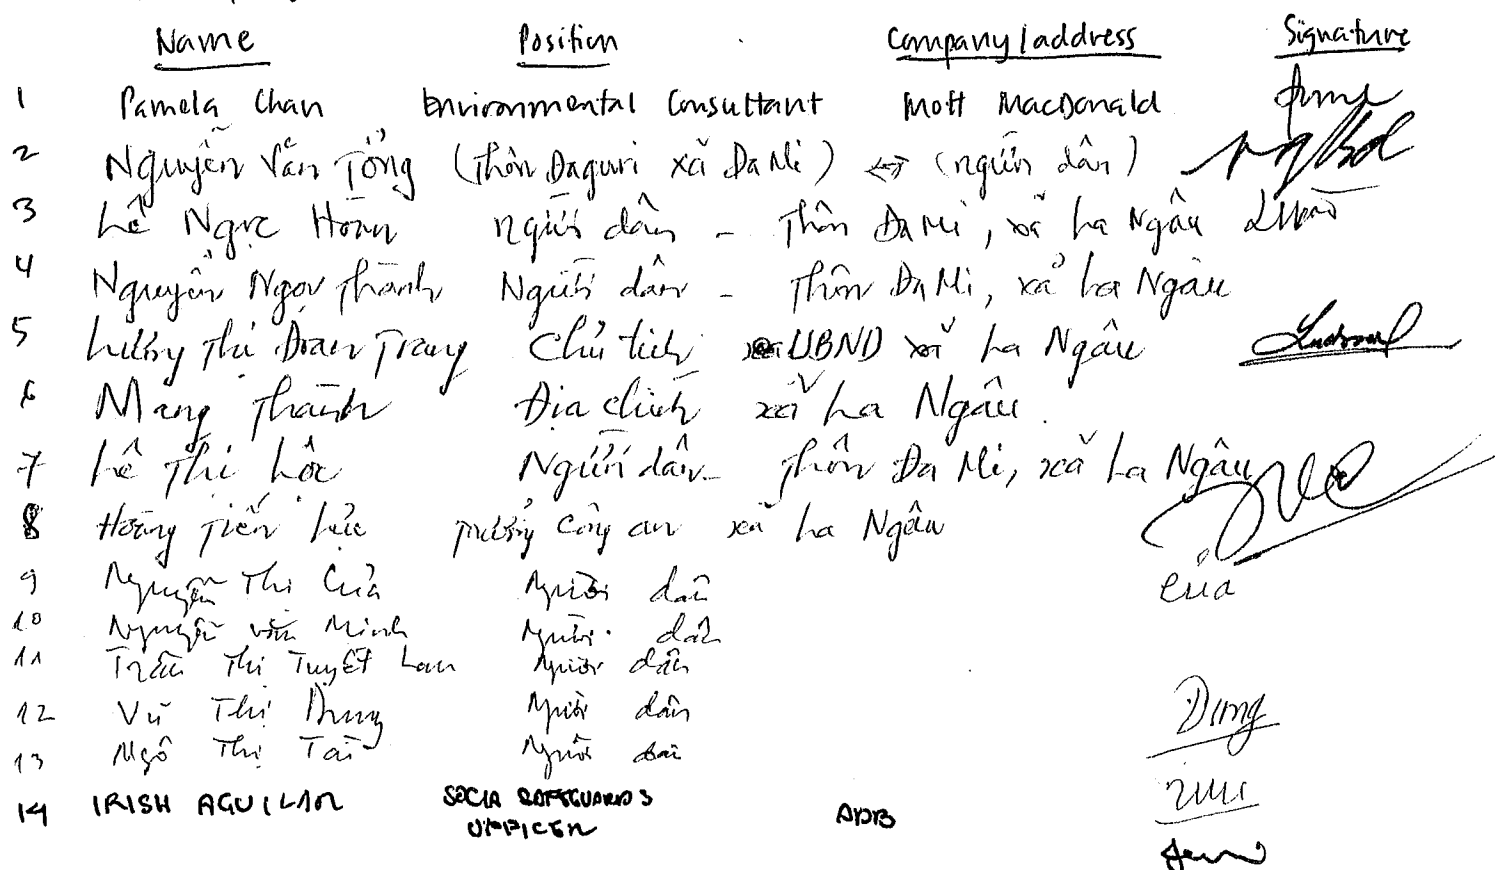 Name Position Company/address Signature
1 Pamela Chan Environmental Consultant Mott MacDonald
2 Nguyễn Văn Tổng (Thôn Đaguri xã Đa Mi) ↔ (người dân)
3 Lê Ngọc Hoàn người dân - Thôn Đa Mi, xã La Ngâu
4 Nguyễn Ngọc Thành Người dân - Thôn Đa Mi, xã La Ngâu
5 Lương Thị Đoan Trang Chủ tịch UBND xã La Ngâu
6 Mang Thành Địa chính xã La Ngâu
7 Lê Thị Lộc Người dân - Thôn Đa Mi, xã La Ngâu
8 Hoàng Tiến Lực Trưởng Công an xã La Ngâu
9 Nguyễn Thị Của Người dân Của
10 Nguyễn Văn Minh Người dân
11 Trần Thị Tuyết Lan Người dân
12 Vũ Thị Dung Người dân Dung
13 Ngô Thị Tài Người dân
14 IRISH AGUILAR SOCIA SAFEGUARDS ADB
OFFICER